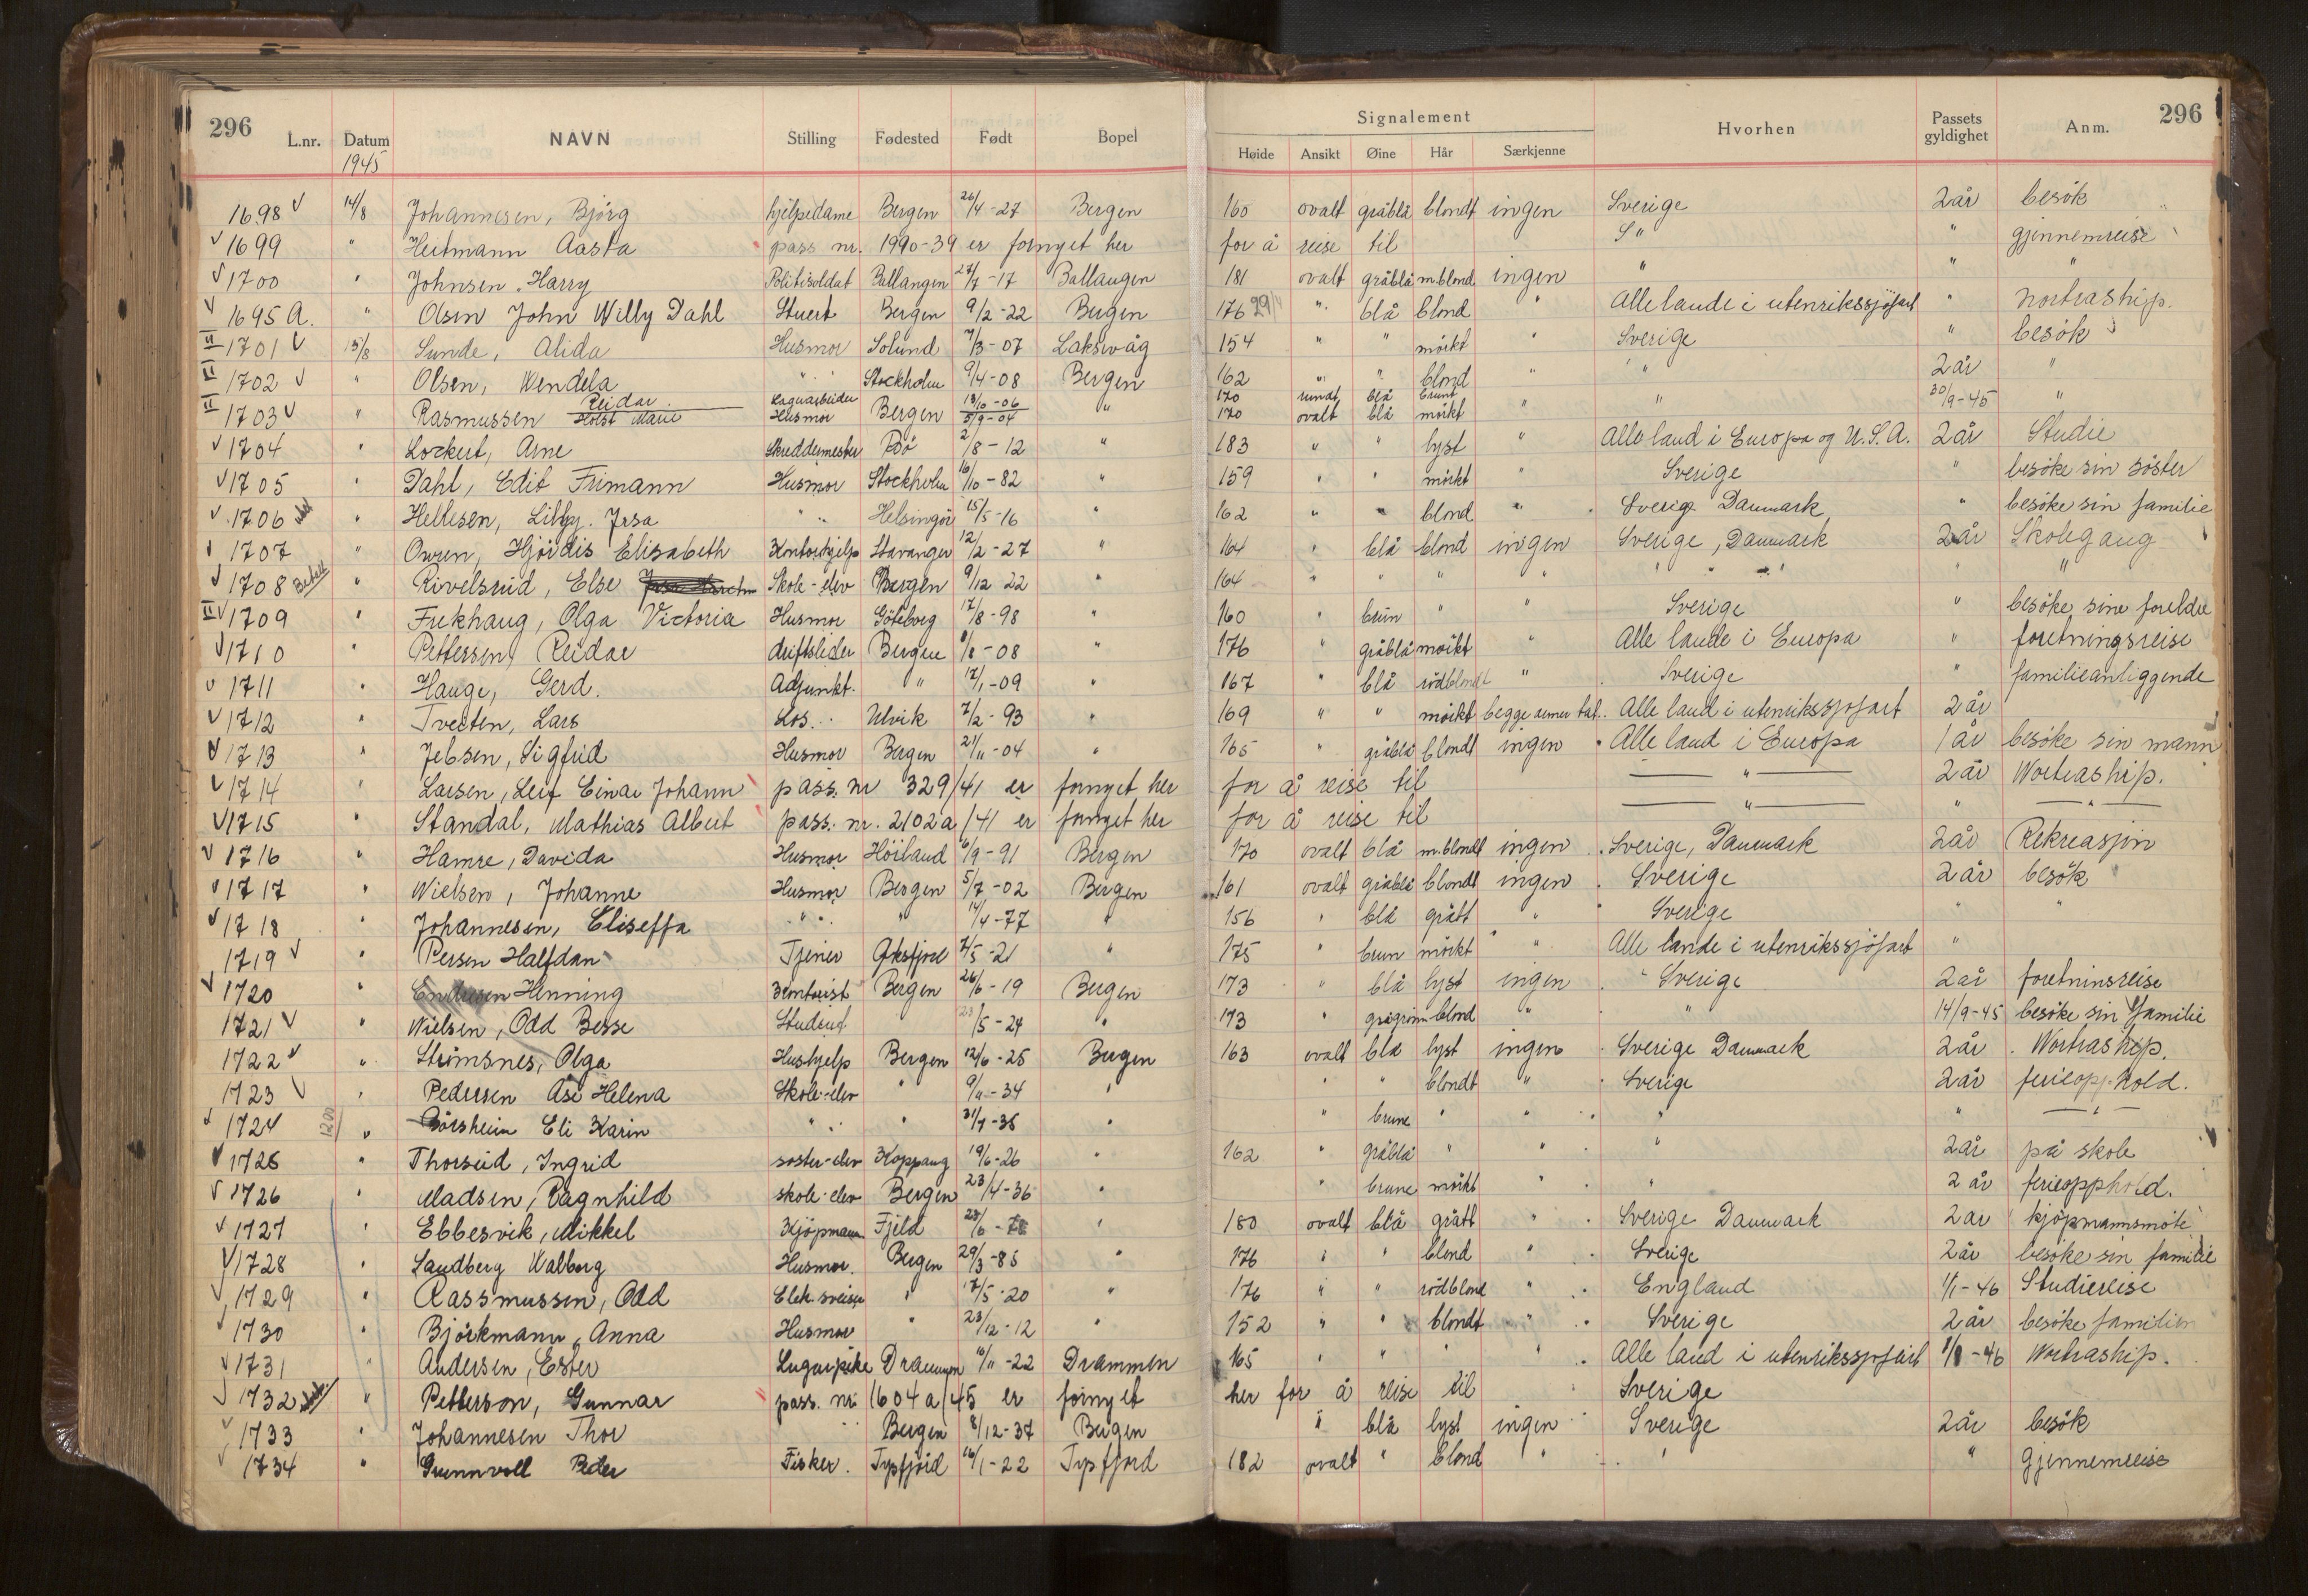 296 L.nr. Datum NAVN Stilling Fødested Født Bopel Signalement Hvorhen Passets gyldighet Anm. 296
1945 Høide Ansikt Øine Hår Særkjenne
1698 √ 14/8 Johannesen, Bjørg hjelpedame Bergen 26/4-27 Bergen 160 ovalt gråblå blondt ingen Sverige 2 år besök
√ 1699 " Heitmann Aasta pass nr. 1990-39 er fornyet her for å reise til S " " gjennemreise
√ 1700 " Johnsen, Harry Politisoldat Ballangen 27/7-17 Ballangen 181 ovalt gråblå m.blond ingen " " "
√ 1695 A. " Olsen John Willy Dahl Stuert Bergen 9/2-22 Bergen 176 " blå blond " Alle lande i utenrikssjöfart " Nortraship.
II 1701 √ 15/8 Sunde, Alida Husmor Solund 7/3-07 Laksevåg 154 " " mörkt " Sverige " besök
II 1702 √ " Olsen, Wendela " Stockholm 9/4-08 Bergen 162 " " blond " " 2 år "
II 1703 √ " Rasmussen Reidar Lagerarbeider Bergen 13/10-06 " 170 rundt blå brunt " " 30/9-45 "
Holst Marie Husmor 5/9-04 170 ovalt blå mörkt
√ 1704 " Lockert, Arne Skreddermester Bö 2/8-12 " 183 " " lyst " Alle land i Europa og U.S.A. 2 år Studie
√ 1705 " Dahl, Edit Frimann Husmor Stockholm 16/10-82 " 159 " " mörkt " Sverige " besöke sin söster
√ 1706 " Hellesen, Lilly. Jrsa " Helsingör 15/5-16 " 162 " " blond " Sverig. Danmark " besöke sin familie
√ 1707 " Owren, Hjördis Elisabeth Kontorhjelp Stavanger 12/2-27 " 164 " blå blond ingen Sverige, Danmark 2 år Skolegang
√ 1708 " Rivelsrud, Else Skole-elev Bergen 9/12 22 " 164 " " " " " " " "
II √ 1709 " Frekhaug, Olga Victoria Husmor Göteborg 17/8-98 " 160 " brun " " Sverige " besöke sine foreldre
√ 1710 " Pettersen, Reidar driftsleder Bergen 8/8-08 " 176 " gråblå mörkt " Alle lande i Europa " foretningsreise
√ 1711 " Hauge, Gerd. Adjunkt. " 12/1-09 " 167 " blå rödblondt " Sverige " familieanliggende
√ 1712 " Tveiten, Lars Los. Ulvik 7/2-93 " 169 " " mörkt begge armer tat. Alle land i utenrikssjöfart 2 år
√ 1713 " Jebsen, Sigfrid Husmor Bergen 21/11-04 " 165 " gråblå blondt ingen Alle land i Europa 1 år besöke sin mann
√ 1714 " Larsen, Leif Einar Johann pass. nr 329/41 er fornyet her for å reise til " 2 år Nortraship.
√ 1715 " Standal, Mathias Albert pass. nr. 2102a/41 er fornyet her for å reise til " " "
√ 1716 " Hamre, Davida Husmor Höiland 6/9-91 Bergen 170 ovalt blå m.blondt ingen Sverige, Danmark 2 år Rekreasjon
√ 1717 " Nielsen, Johanne Husmor Bergen 5/7-02 Bergen 161 ovalt gråblå blondt ingen Sverige 2 år besök
√ 1718 " Johannesen, Eliseffa " " 14/4-77 " 156 " blå grått " Sverige " "
1719 √ " Persen Halfdan Tjener Öksfjord 7/5-21 " 175 " brun mörkt " Alle lande i utenrikssjöfart "
√ 1720 " Endresen Henning Kontorist Bergen 26/6-19 Bergen 173 " blå lyst ingen Sverige 2 år foretninsreise
1721 √ " Nielsen, Odd Besse Student " 23/5-24 " 173 " grågrønn blond " " 14/9-45 besöke sin familie
1722 √ " Strömsnes, Olga Hushjelp Bergen 12/6-25 Bergen 163 ovalt blå lyst ingen Sverige Danmark 2 år Nortraship.
1723 √ " Pedersen Åse Helena Skole-elev " 9/11-34 " " " blondt " Sverige 2 år ferieopphold.
√ 1724 " Börsheim Eli Karin " " 31/7-36 " " brune " " " " "
√ 1725 " Thorseid, Ingrid söster-elev Koppang 19/6-26 " 162 " gråblå " " " 2 år på skole
√ 1726 " Madsen, Ragnhild skole-elev Bergen 23/4-36 " " brune mörkt " " 2 år ferieopphold.
√ 1727 " Ebbesvik, Mikkel Kjöpmann Fjeld 23/6- " 180 ovalt blå grått " Sverige Danmark 2 år kjöpmannsmöte
√ 1728 " Sandberg Walborg Husmor. Bergen 29/3-85 " 176 " " blond " Sverige 2 år besöke sin familie
√ 1729 " Rassmussen, Odd Elek. sveiser " 17/5-20 " 176 " " rödblond " England 1/1-46 Studiereise
√ 1730 " Björkmann, Anna Husmor " 23/12-12 " 152 " " blondt " Sverige 2 år besöke familien
√ 1731 " Andersen, Ester Lugarpike Drammen 16/11-22 Drammen 165 " " " " Alle land i utenrikssjöfart 1/8-46 Nortraship.
√ 1732 " Petterson, Gunnar pass. nr. 1604a/45 er fornyet her for å reise til Sverige
√ 1733 " Johannesen Thor Bergen 8/12-37 Bergen " blå lyst ingen Sverige 2 år besök
√ 1734 " Grunnvoll Peder Fisker. Tysfjord 16/1-22 Tysfjord 182 ovalt " blond " " " gjennemreise